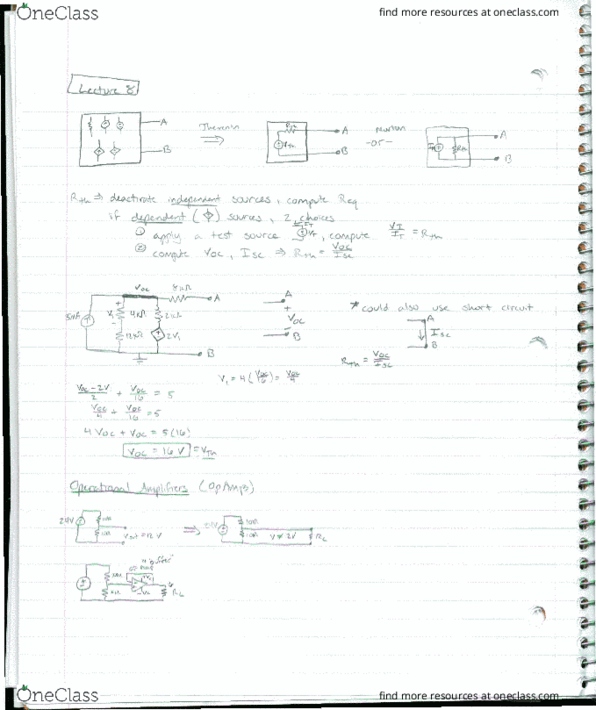 OneClass
find more resources at oneclass.com
Lecture 8
A
B
Thevenin
⇒
A
B
Norton
-or-
A
B
Rth ⇒ deactivate independent sources, compute Req
if dependent sources, 2 choices
① apply a test source, compute VT/IT = Rth
② compute Voc, Isc ⇒ Rth = Voc/Isc
Voc
8kΩ
A
5mA
V1
4kΩ
2kΩ
12kΩ
2V1
B
A
+
Voc
-
B
* could also use short circuit
A
Isc
B
Rth = Voc/Isc
V1 = 4(Voc/16) = Voc/4
Voc-2V/2 + Voc/16 = 5
Voc/4 + Voc/16 = 5
4Voc + Voc = 5(16)
Voc = 16 V = VTh
Operational Amplifiers (OpAmps)
24V
10k
10k
Vout = 12 V
⇒
10k
10k
RL
"buffer"
RL
OneClass
find more resources at oneclass.com